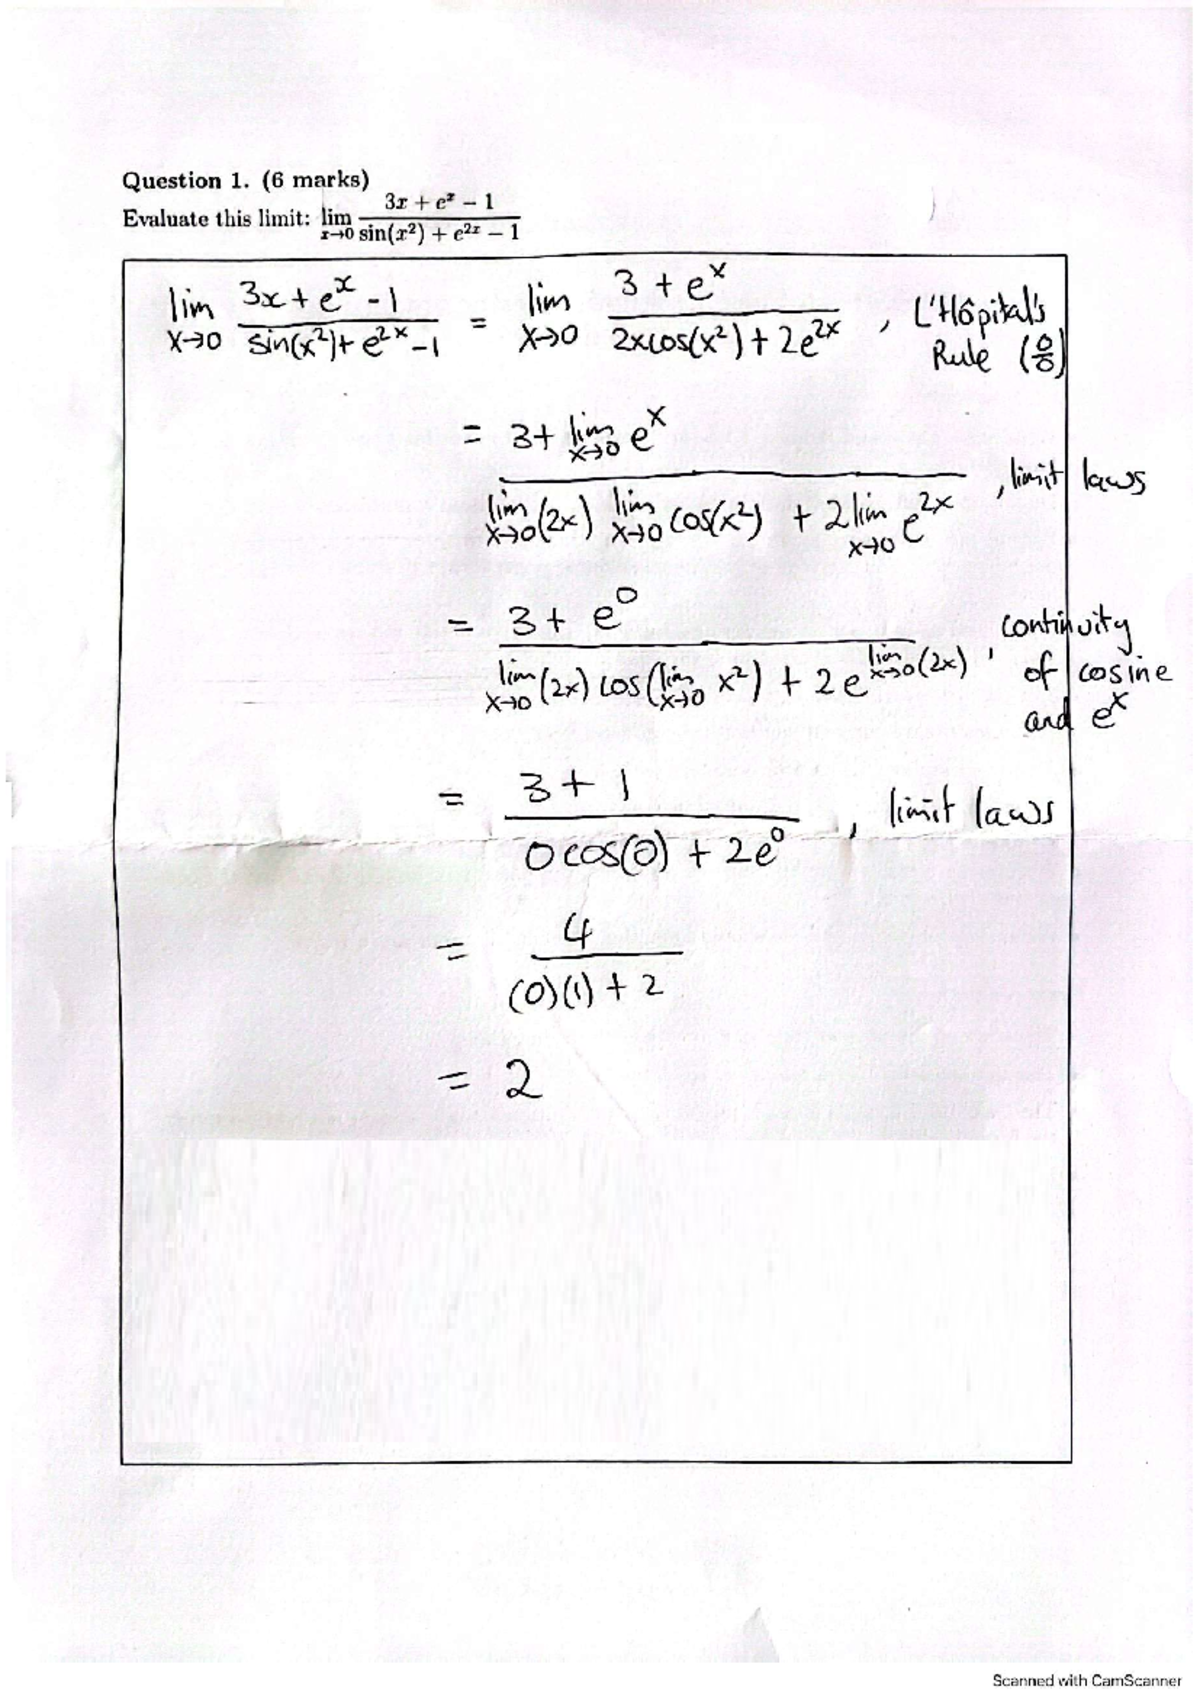 Question 1. (6 marks)
Evaluate this limit: lim x→0 (3x + e^x − 1)/(sin(x²) + e^{2x} − 1)
lim x→0 (3x + e^x - 1)/(sin(x²) + e^{2x} - 1) = lim x→0 (3 + e^x)/(2xcos(x²) + 2e^{2x}) , L'Hôpital's Rule (0/0)
= (3 + lim x→0 e^x)/(lim x→0 (2x) lim x→0 cos(x²) + 2 lim x→0 e^{2x}) , limit laws
= (3 + e^0)/(lim x→0 (2x) cos(lim x→0 x²) + 2e^{lim x→0 (2x)}) , continuity of cosine and e^x
= (3 + 1)/(0cos(0) + 2e^0) , limit laws
= 4/((0)(1) + 2)
= 2
Scanned with CamScanner